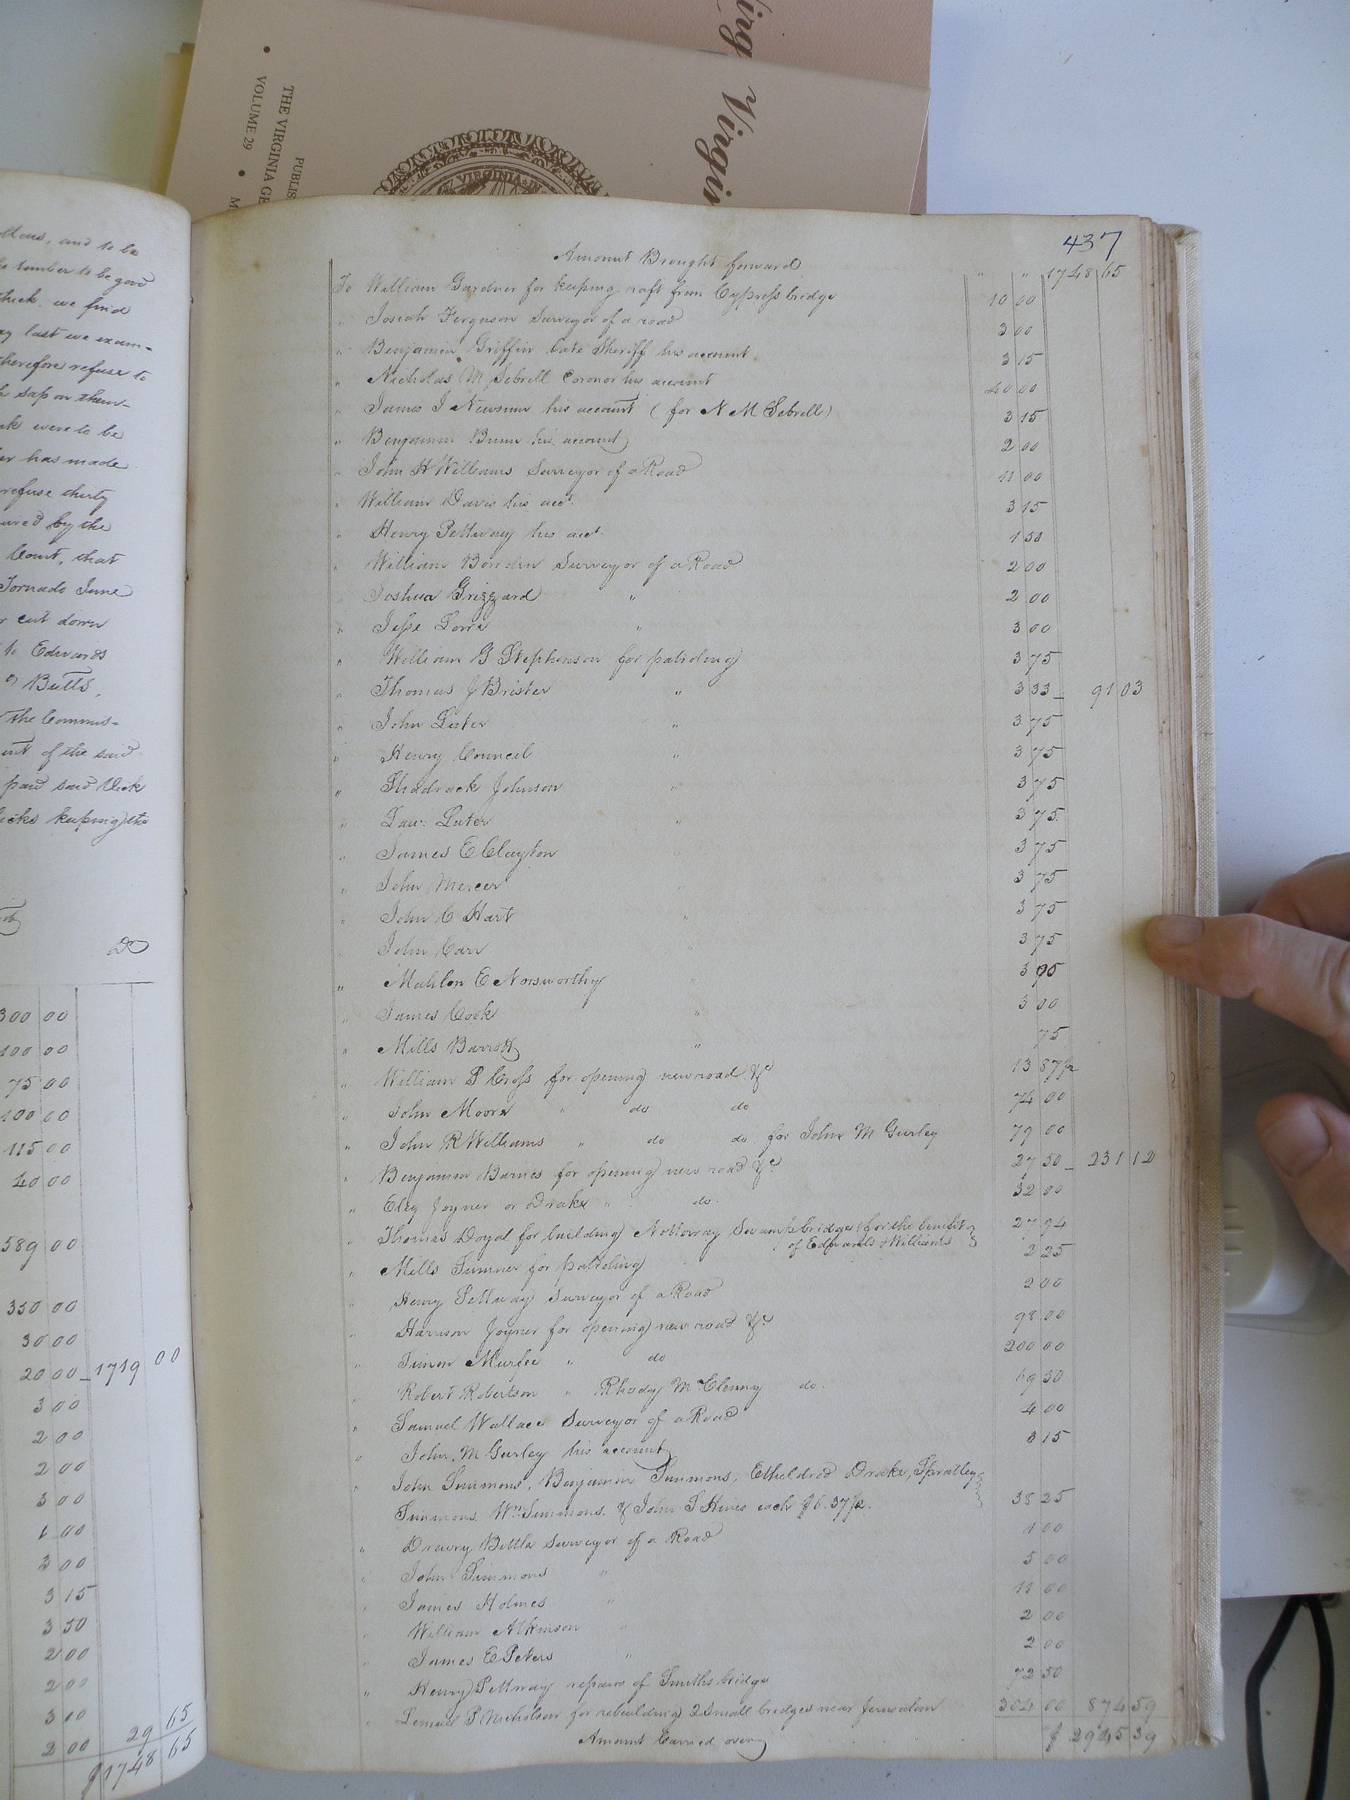 Virg
Virgin
PUBLIS
THE VIRGINIA GE
VOLUME 29 • M
VIRGINIA
ttons, and to be
timber to be good
thick. we find
last we exam-
therefore refuse to
sap on them
were to be
has made
refuse thirty
by the
Court, that
Tornado June
cut down
to Edwards
Butts,
the Commis-
of the said
paid said Vick
keeping the
Dr
300 00
100 00
75 00
100 00
115 00
40 00
589 00
350 00
30 00
20 00 - 1719 00
3 00
2 00
2 00
3 00
1 00
3 00
3 15
3 50
2 00
2 00
3 00
2 00 29 65
$1748 65
437
Amount Brought forward " " 1748 65
To William Gardner for keeping raft from Cypress bridge 10 00
" Josiah Ferguson Surveyor of a road 3 00
" Benjamin Griffin late Sheriff his account 3 15
" Nicholas M Sebrell Coronor his account 40 00
" James J Newsum his account (for N M Sebrell) 3 15
" Benjamin Bunn his account 2 00
" John H Williams Surveyor of a Road 11 00
" William Davis his acct 3 15
" Henry Pettway his acct 1 50
" William Bowden Surveyor of a Road 2 00
" Joshua Grizzard " 2 00
" Jesse " 3 00
" William G Stephenson for patroling 3 75
" Thomas J Brister " 3 33 - 91 03
" John Luter " 3 75
" Henry Council " 3 75
" Shadrack Johnson " 3 75
" Law: Luter " 3 75
" James E Clayton 3 75
" John Mercer 3 75
" John C Hart " 3 75
" John Carr 3 75
" Mahlon E Norsworthy " 3 75
" James Cook " 3 00
" Mills Barrott " 75
" William P Cross for opening new road &c 13 87½
" John Moore " do do 74 00
" John R Williams " do do for John M Gurley 79 00
" Benjamin Barnes for opening new road &c 27 50 - 231 12
" Eley Joyner or Drake " do 32 00
" Thomas Doyal for building Nottoway Swamp bridge (for the benefit 27 94
of Edwards & Williams
" Mills Sumner for patroling 2 25
" Henry Pettway Surveyor of a Road 2 00
" Harrison Joyner for opening new road &c 98 00
" Simon Murfee " do 200 00
" Robert Robertson " Rhody McClenny do. 69 50
" Samuel Wallace Surveyor of a Road 4 00
" John M Gurley his account 3 15
" John Simmons, Benjamin Simmons, Etheldred Drake, Spratley
Simmons Wm Simmons & John S Hines each $6.37½. 38 25
" Drewry Bittle Surveyor of a Road 1 00
" John Simmons " 5 00
" James Holmes " 11 00
" William Atkinson " 2 00
" James E Peters " 2 00
" Henry Pettway repairs of Smiths bridge 72 50
" Lemuel P Nicholson for rebuilding 2 Small bridges near Jerusalem 304 00 874 59
Amount Carried over $ 2945 39